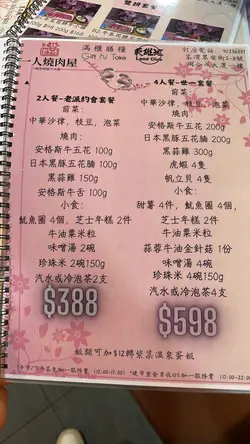 滿櫃膳糧
Gift N Take
Land Club
訂座電話：
一人燒肉屋
2人餐-老派約會套餐
前菜:
中華沙律，枝豆，泡菜
燒肉:
安格斯牛五花 100g
日本黑豚五花腩 100g
黑蒜雞 150g
安格斯牛舌 100g
小食:
魷魚圈 4個，芝士年糕 2件
牛油粟米粒
味噌湯 2碗
珍珠米 2碗150g
汽水或冷泡茶2支
$388
4人餐-世一套餐
前菜:
中華沙律，枝豆，泡菜
燒肉:
安格斯牛五花 200g
日本黑豚五花腩 200g
黑蒜雞 300g
虎蝦 4隻
帆立貝 4隻
小食:
甜薯 4件, 魷魚圈 4個,
芝士年糕 2件
牛油粟米粒
蒜蓉牛油金針菇 1份
味噌湯 4碗
珍珠米 4碗150g
汽水或冷泡茶4支
$598
飯類可加$12轉紫菜溫泉蛋飯